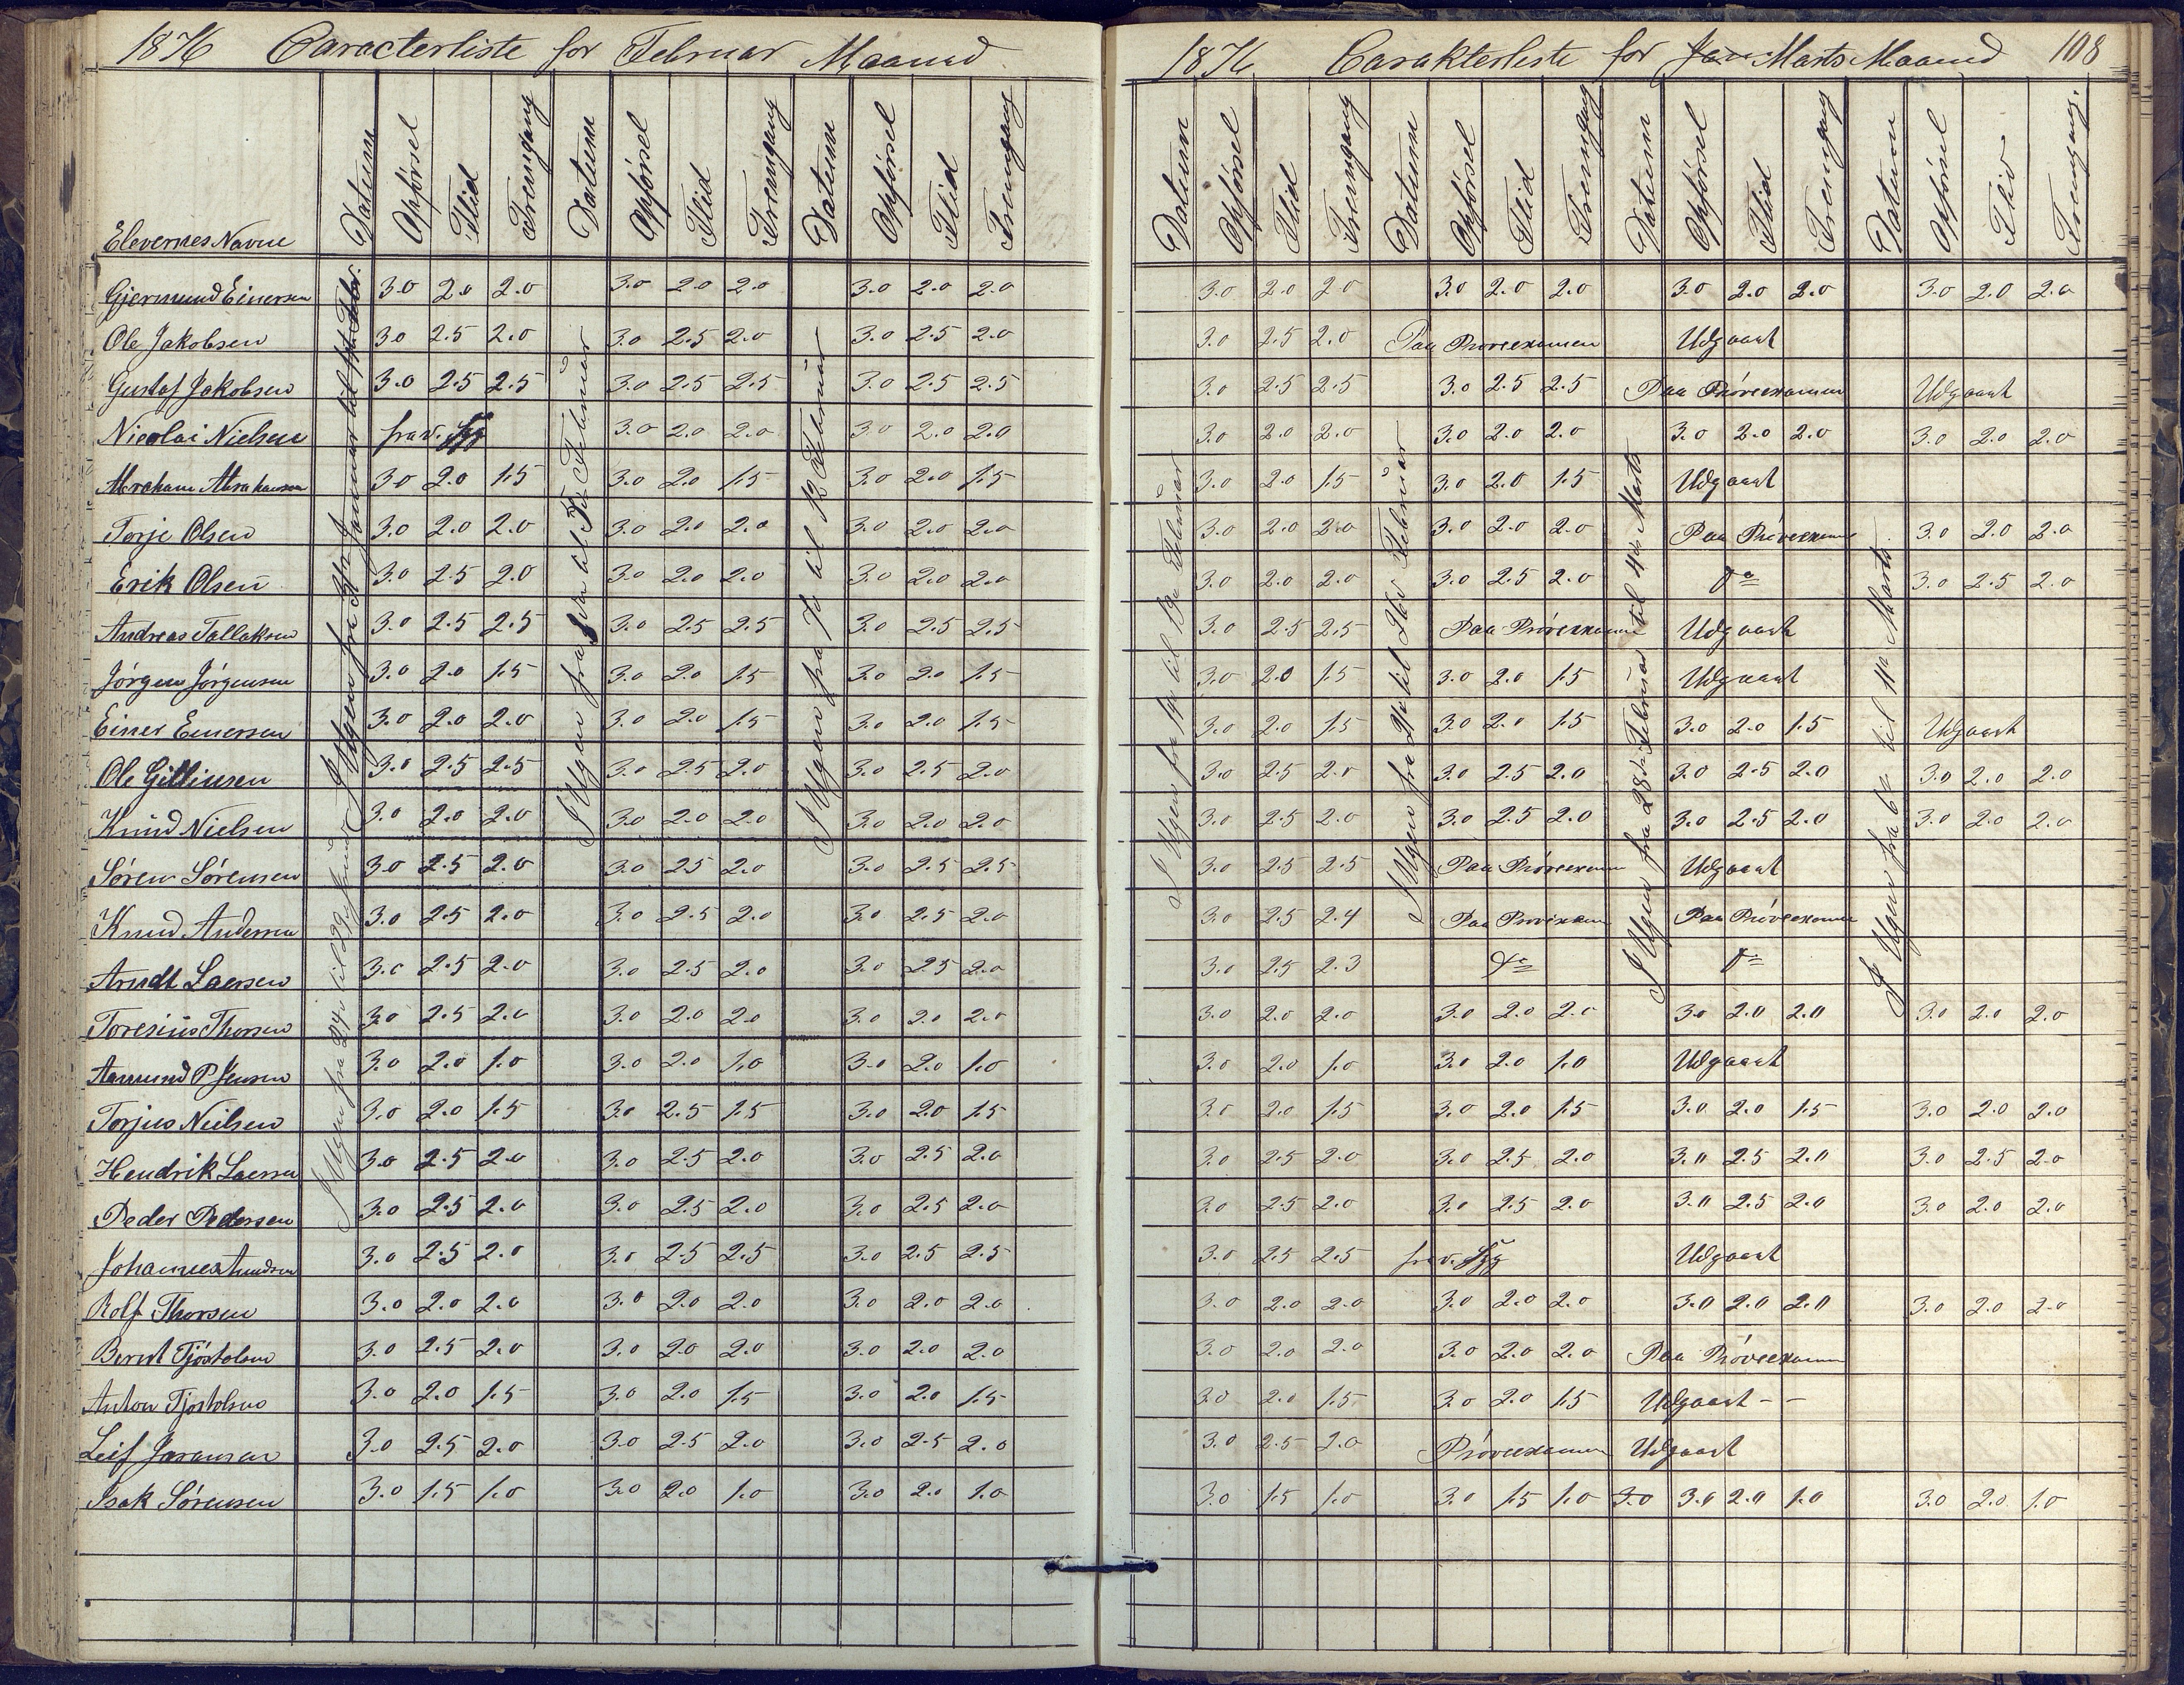 1876 Caracterliste for Februar Maaned
Elevernes Navne Datum Opførsel Flid Fremgang Datum Opførsel Flid Fremgang Datum Opførsel Flid Fremgang
Gjermund Einersen 3.0 2.0 2.0 3.0 2.0 2.0 3.0 2.0 2.0
Ole Jakobsen 3.0 2.5 2.0 3.0 2.5 2.0 3.0 2.5 2.0
Gustaf Jakobsen 3.0 2.5 2.5 3.0 2.5 2.5 3.0 2.5 2.5
Nicolai Nielsen frav. Syg 3.0 2.0 2.0 3.0 2.0 2.0
Abraham Abrahamsen 3.0 2.0 1.5 3.0 2.0 1.5 3.0 2.0 1.5
Torje Olsen 3.0 2.0 2.0 3.0 2.0 2.0 3.0 2.0 2.0
Erik Olsen 3.0 2.5 2.0 3.0 2.0 2.0 3.0 2.0 2.0
Andreas Tallaksen 3.0 2.5 2.5 3.0 2.5 2.5 3.0 2.5 2.5
Jørgen Jørgensen 3.0 2.0 1.5 3.0 2.0 1.5 3.0 2.0 1.5
Einer Einersen 3.0 2.0 2.0 3.0 2.0 1.5 3.0 2.0 1.5
Ole 3.0 2.5 2.5 3.0 2.5 2.0 3.0 2.5 2.0
Knud Nielsen 3.0 2.0 2.0 3.0 2.0 2.0 3.0 2.0 2.0
Søren Sørensen 3.0 2.5 2.0 3.0 2.5 2.0 3.0 2.5 2.5
Knud Andersen 3.0 2.5 2.0 3.0 2.5 2.0 3.0 2.5 2.0
Arndt Laersen 3.0 2.5 2.0 3.0 2.5 2.0 3.0 2.5 2.0
Toresius Thorsen 3.0 2.5 2.0 3.0 2.0 2.0 3.0 2.0 2.0
Aamund P Jensen 3.0 2.0 1.0 3.0 2.0 1.0 3.0 2.0 1.0
Torjus Nielsen 3.0 2.0 1.5 3.0 2.5 1.5 3.0 2.0 1.5
Hendrik Laersen 3.0 2.5 2.0 3.0 2.5 2.0 3.0 2.5 2.0
Peder Pedersen 3.0 2.5 2.0 3.0 2.5 2.0 3.0 2.5 2.0
Johannes 3.0 2.5 2.0 3.0 2.5 2.5 3.0 2.5 2.5
Rolf Thorsen 3.0 2.0 2.0 3.0 2.0 2.0 3.0 2.0 2.0
Bernt Tjøstolsen 3.0 2.5 2.0 3.0 2.0 2.0 3.0 2.0 2.0
Anton Tjøstolsen 3.0 2.0 1.5 3.0 2.0 1.5 3.0 2.0 1.5
Leif 3.0 2.5 2.0 3.0 2.5 2.0 3.0 2.5 2.0
Isak Sørensen 3.0 1.5 1.0 3.0 2.0 1.0 3.0 2.0 1.0
I Ugen fra 24de til
I Ugen fra 31te Januar til
I Ugen fra til Februar
I Ugen fra 7de til 12 Februar
1876 Carakterliste for Jan Marts Maaned 108
Datum Opførsel Flid Fremgang Datum Opførsel Flid Fremgang Datum Opførsel Flid Fremgang Datum Opførsel Flid Fremgang.
3.0 2.0 2.0 3.0 2.0 2.0 3.0 2.0 2.0 3.0 2.0 2.0
3.0 2.5 2.0 Paa Prøveexamen Udgaaet
3.0 2.5 2.5 3.0 2.5 2.5 Paa Prøveexamen Udgaaet
3.0 2.0 2.0 3.0 2.0 2.0 3.0 2.0 2.0 3.0 2.0 2.0
3.0 2.0 1.5 3.0 2.0 1.5 Udgaaet
3.0 2.0 2.0 3.0 2.0 2.0 Paa Prøveexamen 3.0 2.0 2.0
3.0 2.0 2.0 3.0 2.5 2.0 do 3.0 2.5 2.0
3.0 2.5 2.5 Paa Prøveexamen Udgaaet
3.0 2.0 1.5 3.0 2.0 1.5 Udgaaet
3.0 2.0 1.5 3.0 2.0 1.5 3.0 2.0 1.5 Udgaaet
3.0 2.5 2.0 3.0 2.5 2.0 3.0 2.5 2.0 3.0 2.0 2.0
3.0 2.5 2.0 3.0 2.5 2.0 3.0 2.5 2.0 3.0 2.0 2.0
3.0 2.5 2.5 Paa Prøveexamen Udgaaet
3.0 2.5 2.4 Paa Prøveexamen Paa Prøveexamen
3.0 2.5 2.3 do do
3.0 2.0 2.0 3.0 2.0 2.0 3.0 2.0 2.0 3.0 2.0 2.0
3.0 2.0 1.0 3.0 2.0 1.0 Udgaaet
3.0 2.0 1.5 3.0 2.0 1.5 3.0 2.0 1.5 3.0 2.0 2.0
3.0 2.5 2.0 3.0 2.5 2.0 3.0 2.5 2.0 3.0 2.5 2.0
3.0 2.5 2.0 3.0 2.5 2.0 3.0 2.5 2.0 3.0 2.0 2.0
3.0 2.5 2.5 frav. Syg Udgaaet
3.0 2.0 2.0 3.0 2.0 2.0 3.0 2.0 2.0 3.0 2.0 2.0
3.0 2.0 2.0 3.0 2.0 2.0 Paa Prøveexamen
3.0 2.0 1.5 3.0 2.0 1.5 Udgaaet - -
3.0 2.5 2.0 Prøveexamen Udgaaet
3.0 1.5 1.0 3.0 1.5 1.0 3.0 3.0 2.0 1.0 3.0 2.0 1.0
I Ugen fra 14de til 19de Februar
I Ugen fra 21de til 26de Februar
I Ugen fra 28de Februar til 4de Marts
I Ugen fra 6te til 11te Marts